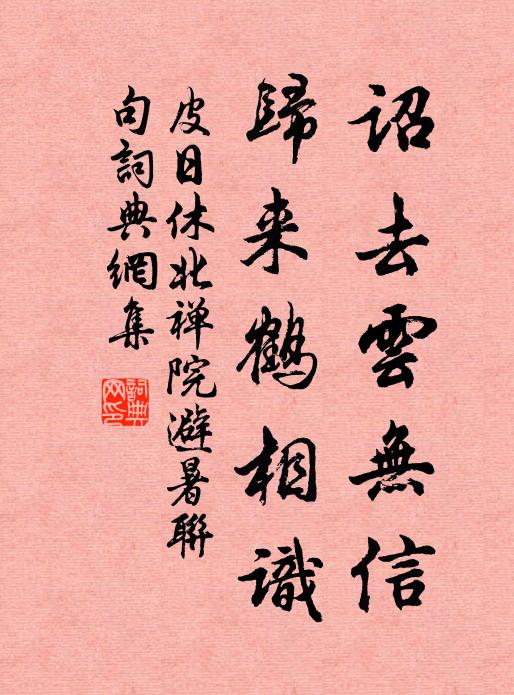 詔去雲無信
歸来鶴相識
皮日休北禅院避暑聯
句詞典網集
詞典网印